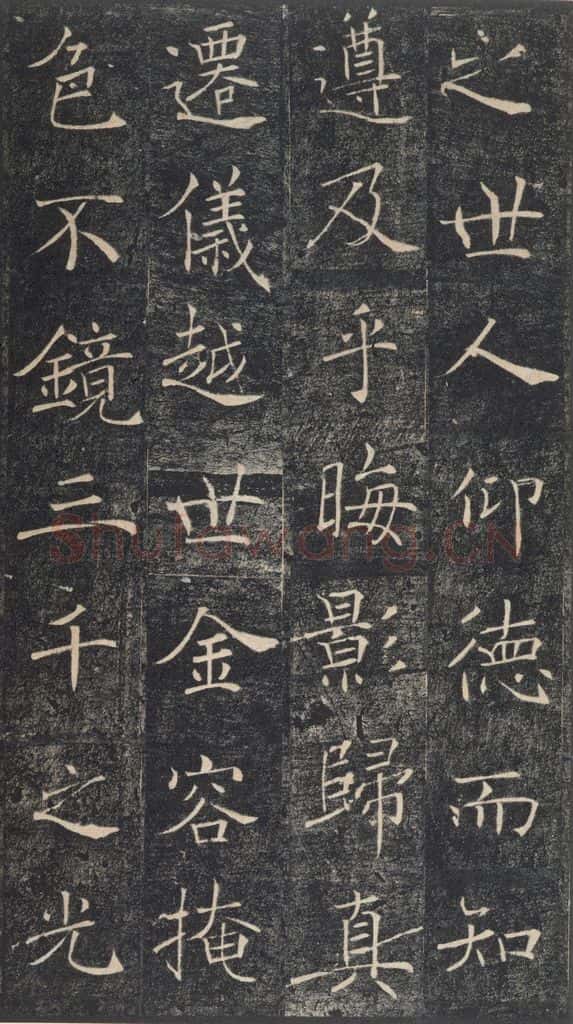 之世人仰德而知
遵及乎晦影歸真
遷儀越世金容掩
色不鏡三千之光
Shufawang.CN